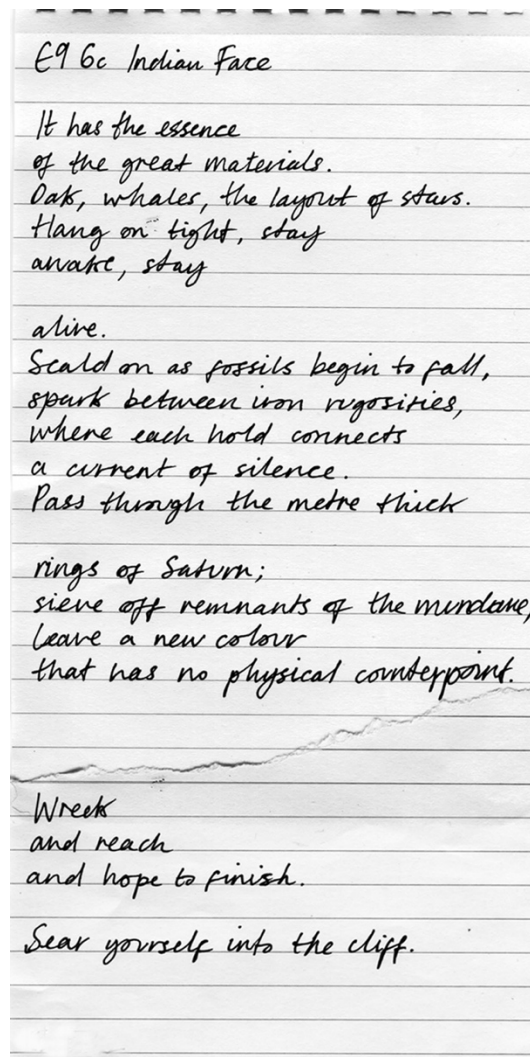 E9 6c Indian Face
It has the essence
of the great materials.
Oak, whales, the layout of stars.
Hang on tight, stay
awake, stay
alive.
Scald on as fossils begin to fall,
spark between iron rugosities,
where each hold connects
a current of silence.
Pass through the metre thick
rings of Saturn;
sieve off remnants of the mundane,
leave a new colour
that has no physical counterpoint.
Wreck
and reach
and hope to finish.
Sear yourself into the cliff.